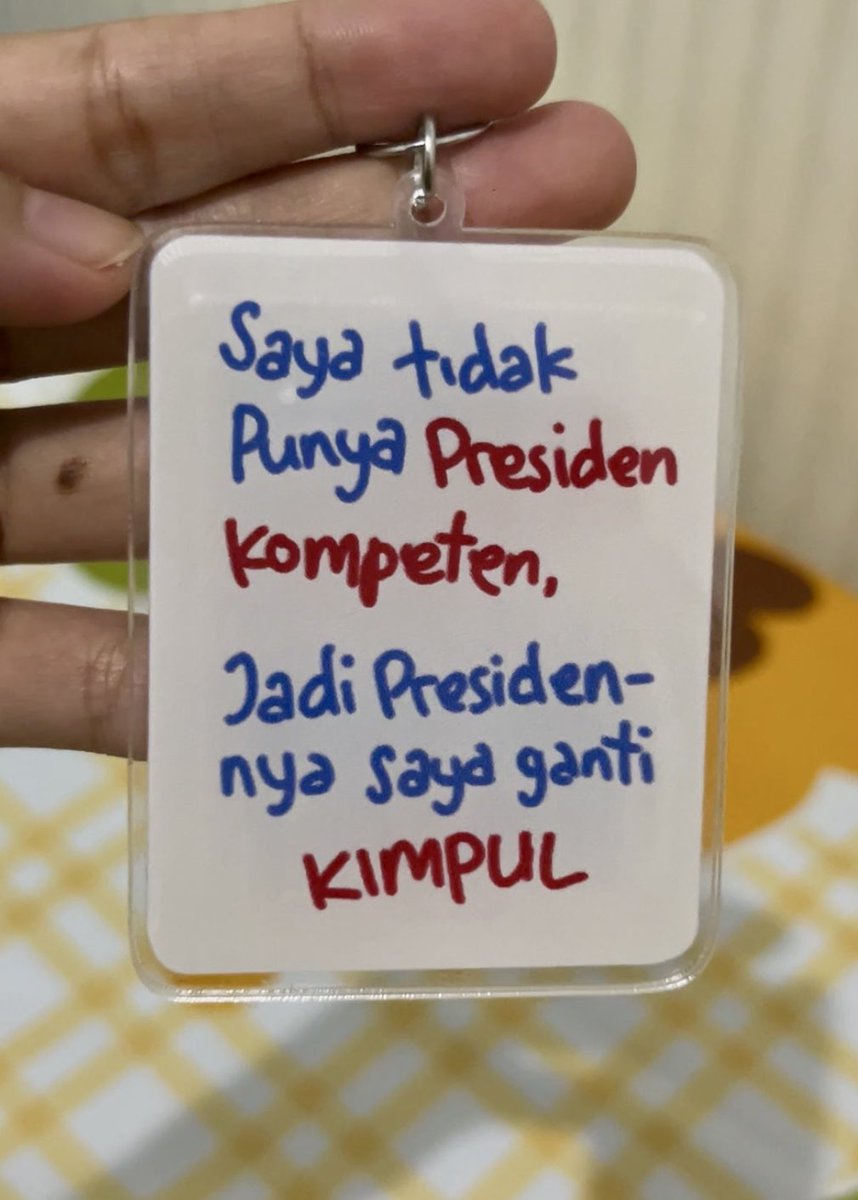 Saya tidak
Punya Presiden
kompeten,
Jadi Presiden-
nya saya ganti
KIMPUL